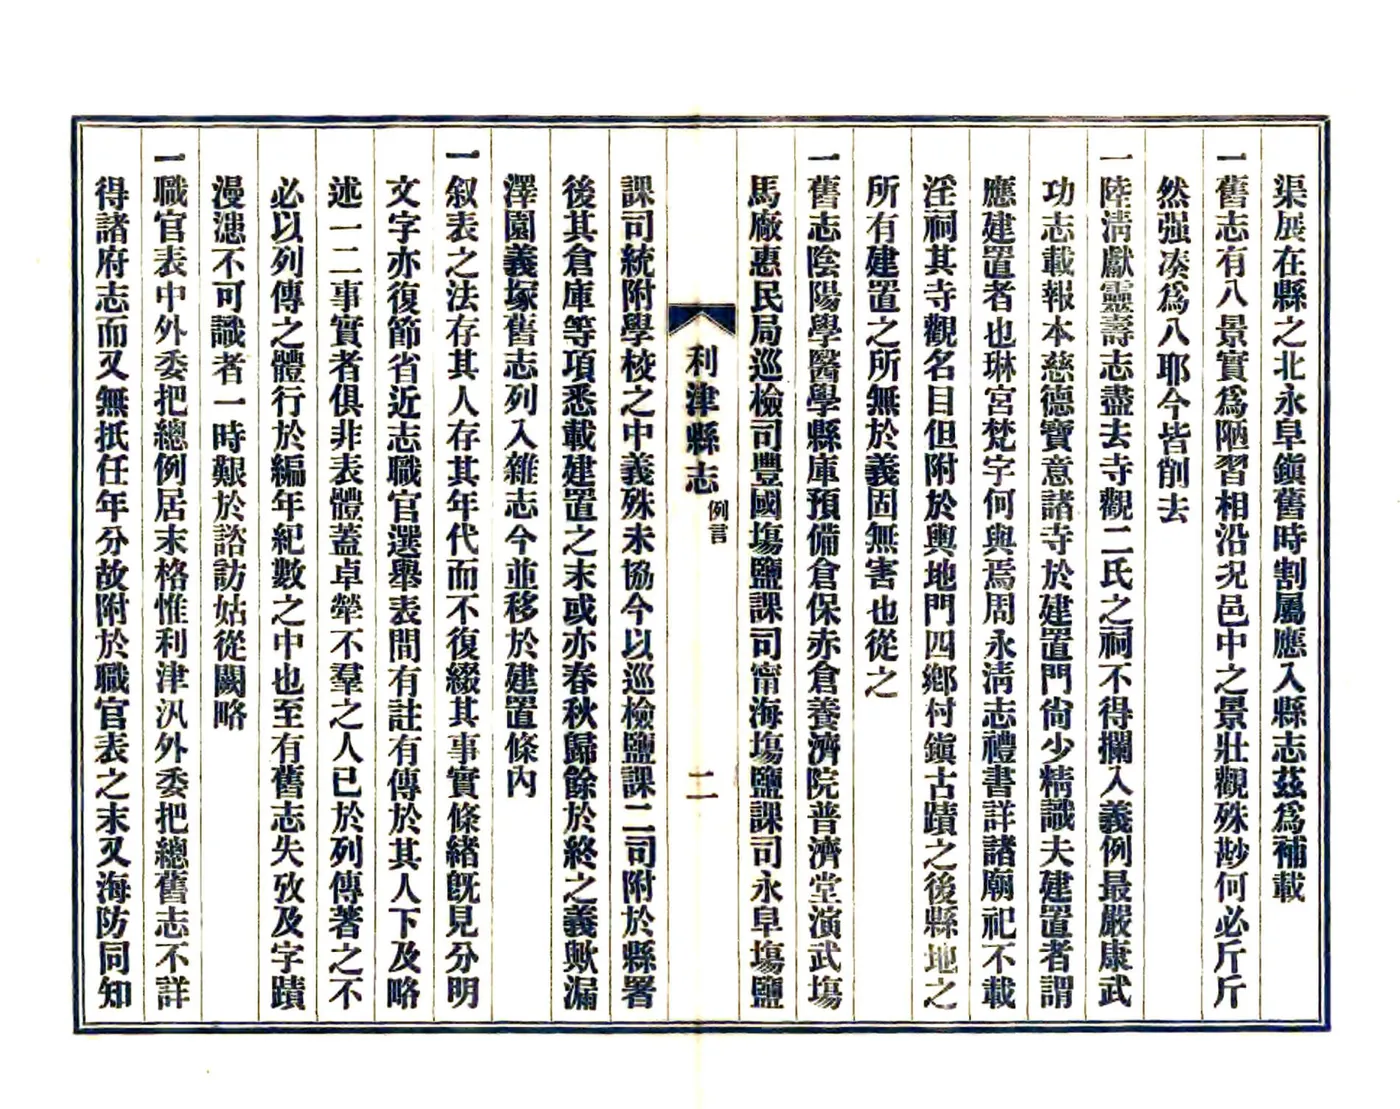 渠展在縣之北永阜鎭舊時割屬應入縣志茲爲補載
一舊志有八景實爲陋習相沿况邑中之景壯觀殊尠何必斤斤
然强凑爲八耶今皆削去
一陸淸獻靈壽志盡去寺觀二氏之祠不得攔入義例最嚴康武
功志載報本慈德寶意諸寺於建置門尙少精識夫建置者謂
應建置者也琳宮梵字何與焉周永淸志禮書詳諸廟祀不載
淫祠其寺觀名目但附於輿地門四鄉村鎭古蹟之後縣地之
所有建置之所無於義固無害也從之
一舊志陰陽學醫學縣庫預備倉保赤倉養濟院普濟堂演武塲
馬廠惠民局巡檢司豐國塲鹽課司甯海塲鹽課司永阜塲鹽
利津縣志 例言 二
課司統附學校之中義殊未協今以巡檢鹽課二司附於縣署
後其倉庫等項悉載建置之末或亦春秋歸餘於終之義歟漏
澤園義塚舊志列入雜志今並移於建置條內
一叙表之法存其人存其年代而不復綴其事實條緒旣見分明
文字亦復節省近志職官選舉表間有註有傳於其人下及略
述一二事實者俱非表體蓋卓犖不羣之人已於列傳著之不
必以列傳之體行於編年紀數之中也至有舊志失攷及字蹟
漫漶不可識者一時艱於諮訪姑從闕略
一職官表中外委把總例居末格惟利津汛外委把總舊志不詳
得諸府志而又無抵任年分故附於職官表之末又海防同知